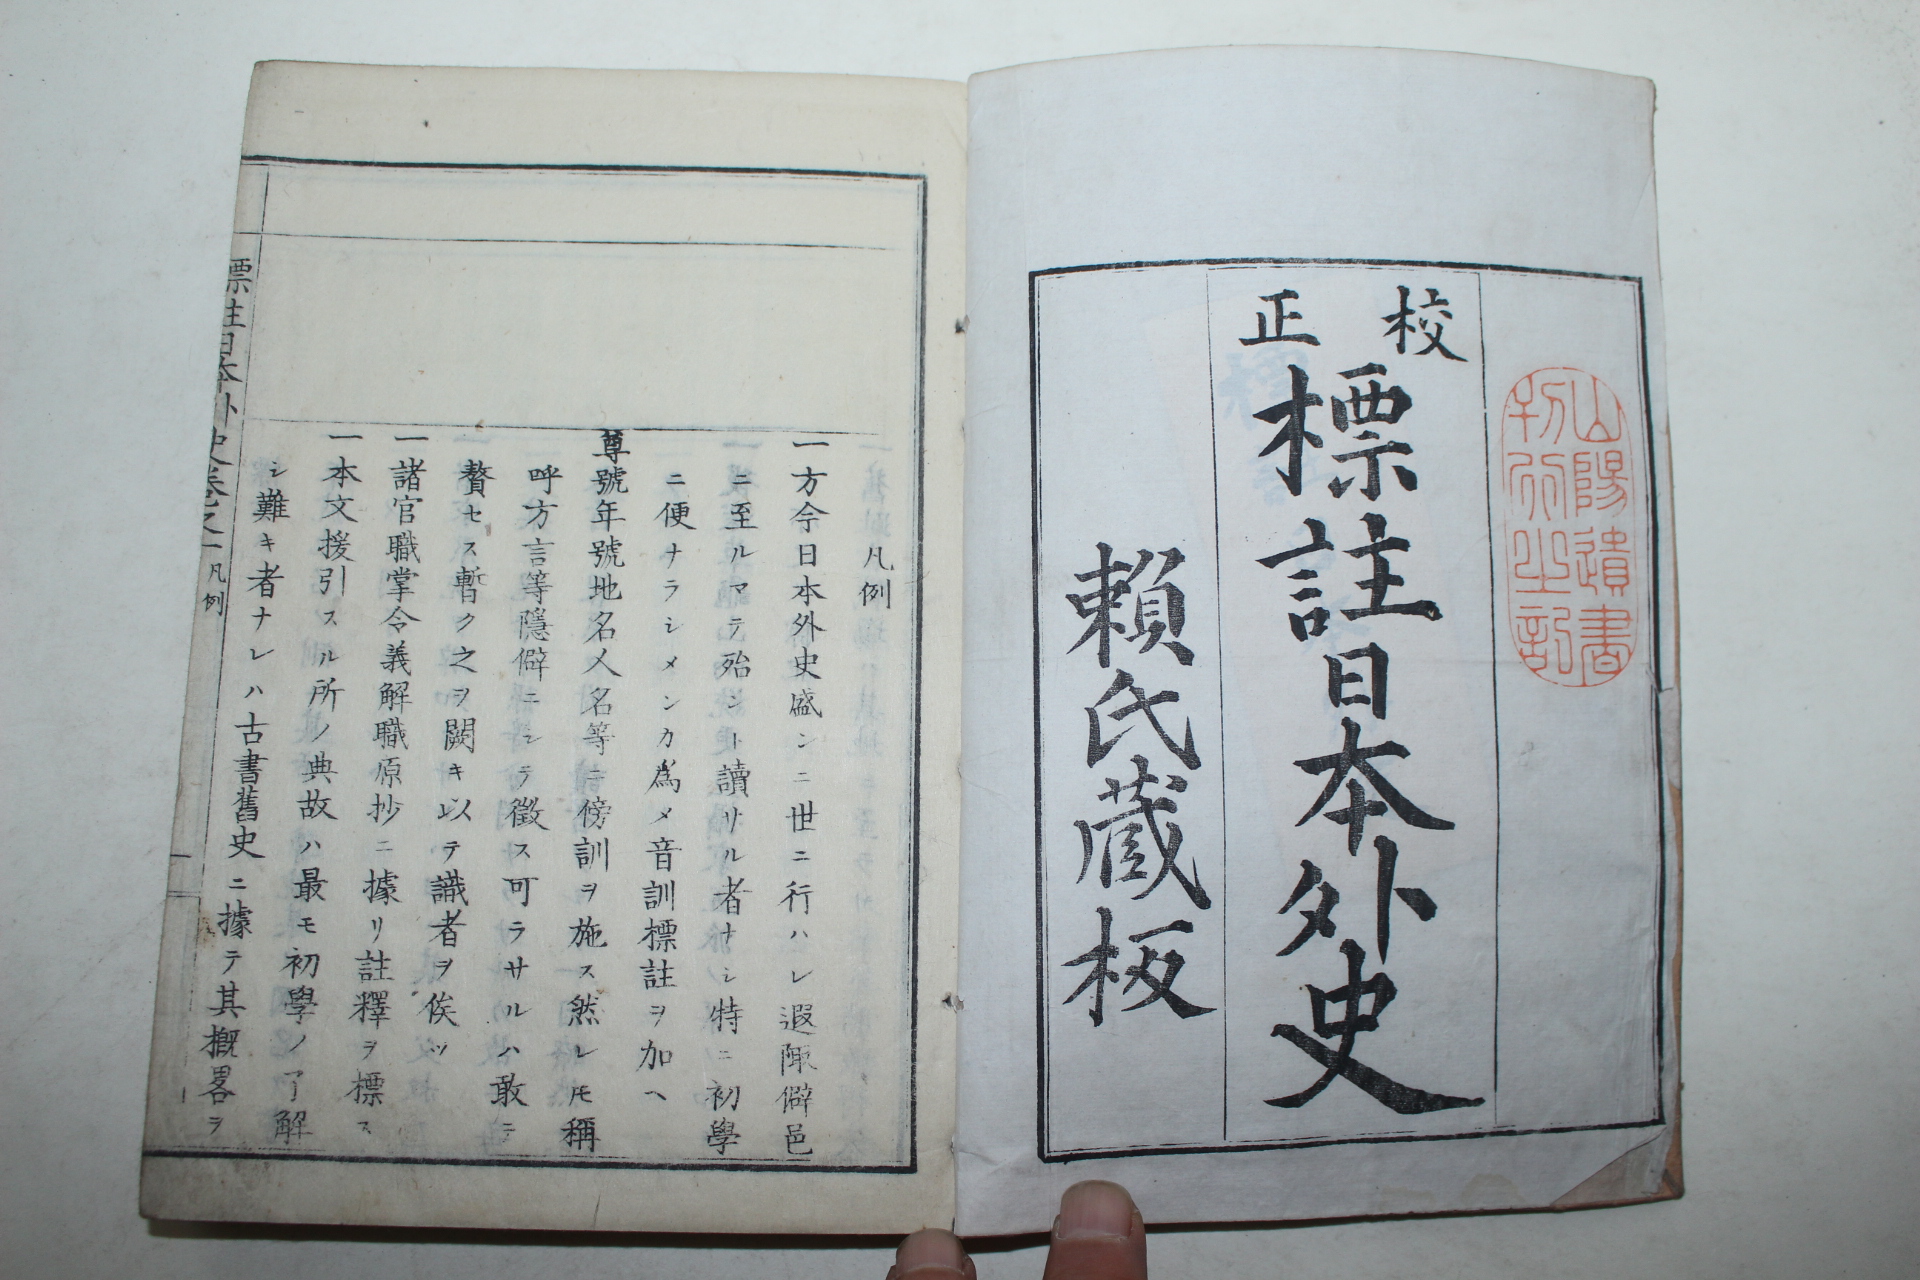 校正
標註日本外史
賴氏蔵板
山陽遺書
刊行之記
凡例
一方今日本外史盛ンニ世ニ行ハレ遐陬僻邑
ニ至ルマテ殆ント讀サル者ナシ特ニ初學
ニ便ナラシメンカ為メ音訓標註ヲ加ヘ
尊號年號地名人名等ニ傍訓ヲ施ス然レ𪜈稱
呼方言等隱僻ニシテ徵ス可ラサルハ敢テ
贅セス暫ク之ヲ闕キ以テ識者ヲ俟ツ
一諸官職掌令義解職原抄ニ據リ註釋ヲ標ス
一本文援引スル所ノ典故ハ最モ初學ノ了解
シ難キ者ナレハ古書舊史ニ據テ其概畧ヲ
標註日本外史卷之一 凡例